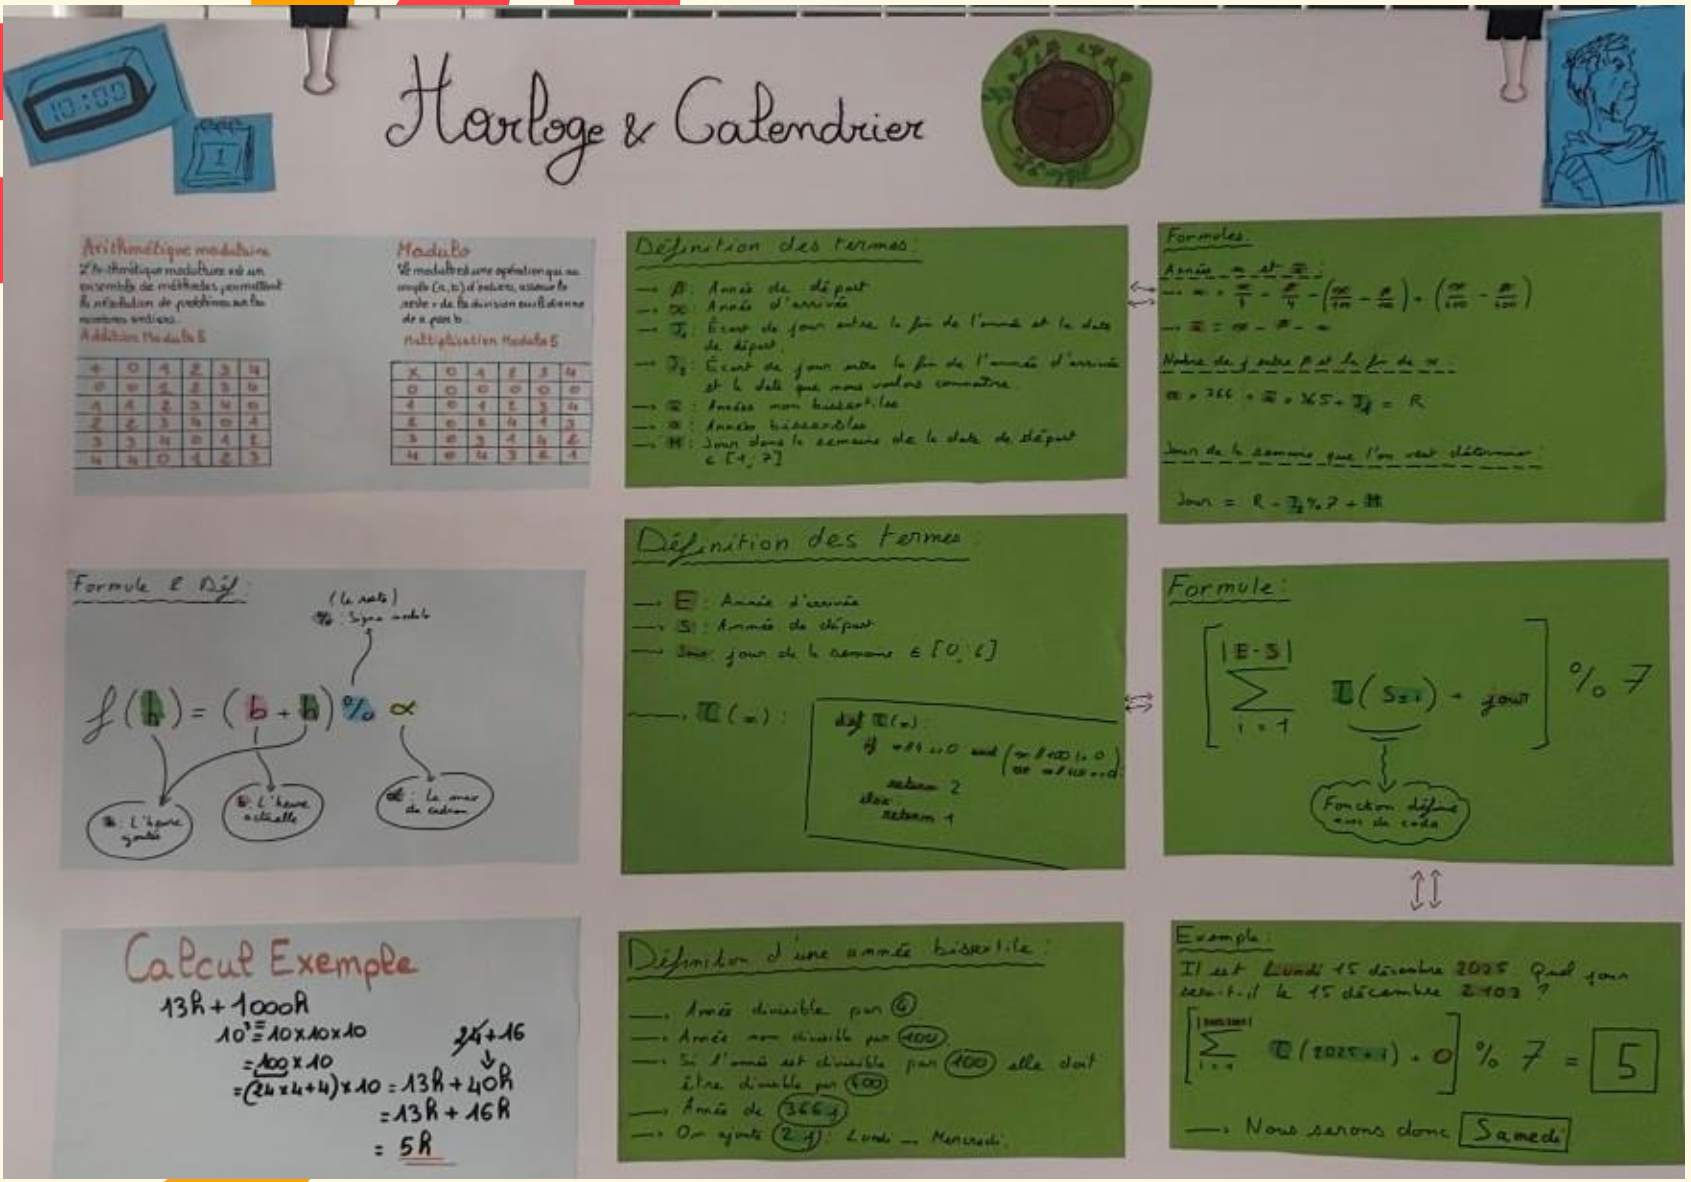 10:00
1
Horloge & Calendrier
Arithmétique modulaire
L'Arithmétique modulaire est un
ensemble de méthodes permettant
la résolution de problèmes sur les
nombres entiers.
Addition Modulo 5
+ 0 1 2 3 4
0 0 1 2 3 4
1 1 2 3 4 0
2 2 3 4 0 1
3 3 4 0 1 2
4 4 0 1 2 3
Modulo
Le modulo est une opération qui au
couple (a, b) d'entiers, associe le
reste r de la division euclidienne
de a par b.
Multiplication Modulo 5
X 0 1 2 3 4
0 0 0 0 0 0
1 0 1 2 3 4
2 0 2 4 1 3
3 0 3 1 4 2
4 0 4 3 2 1
Définition des termes:
→ β: Année de départ
→ α: Année d'arrivée
→ J₁: Écart de jour entre la fin de l'année et la date
de départ.
→ J₂: Écart de jour entre la fin de l'année d'arrivée
et la date que nous voulons connaître.
: Années non bissextiles
: Années bissextiles
→ H: Jour dans la semaine de la date de départ
∈ [1; 7]
Formules.
Année et :
Nombre de j entre β et la fin de α.
366 + 365 + J₁ = R
Jour de la semaine que l'on veut déterminer:
Jour = R - J₂ % 7 + H
Formule & Déf:
(le reste)
% : Signe modulo
f(h) = (b + h) % α
h: L'heure
ajoutée
b: L'heure
actuelle
α: Le max
du cadran
Définition des termes:
→ E: Année d'arrivée
→ S: Année de départ
→ Jour: jour de la semaine ∈ [0, 6]
→ (x):
return 2
else
return 1
Formule:
|E-S|
Σ (S+i) + jour % 7
i = 1
Fonction définie
Calcul Exemple
13h + 1000h
10³ = 10x10x10
= 100 x 10
= (24x4+4) x 10 = 13h + 40h
24+16
= 13h + 16h
= 5h
Définition d'une année bissextile:
→ Année divisible par 4
→ Année non divisible par 100.
→ Si l'année est divisible par 100 elle doit
être divisible par 400
→ Année de 366 j
→ On ajoute 2 j: Lundi → Mercredi.
Exemple:
Il est Lundi 15 décembre 2025 Quel jour
sera-t-il le 15 décembre 2103 ?
Σ (2025+i) + 0 % 7 = 5
→ Nous serons donc Samedi